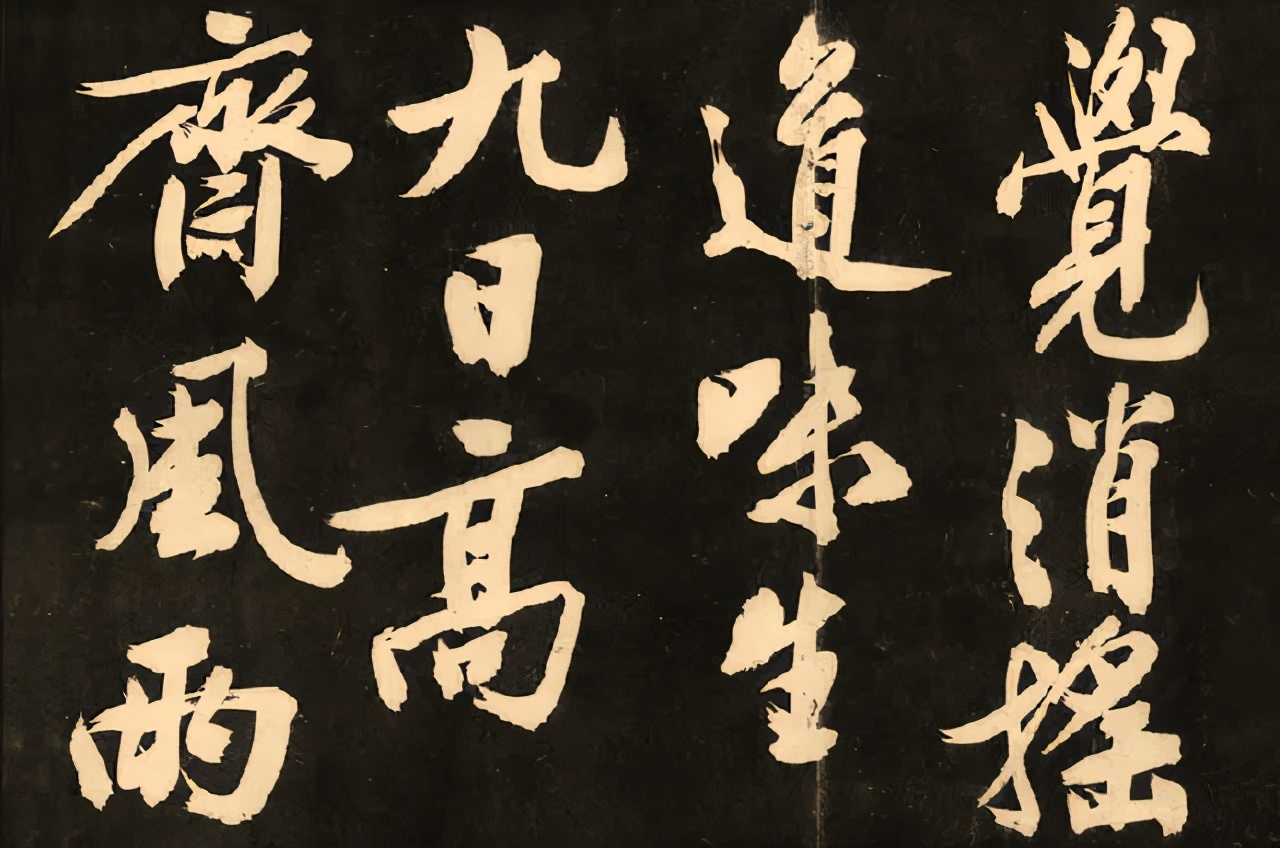 覺消搖
道味生
九日高
齊風雨